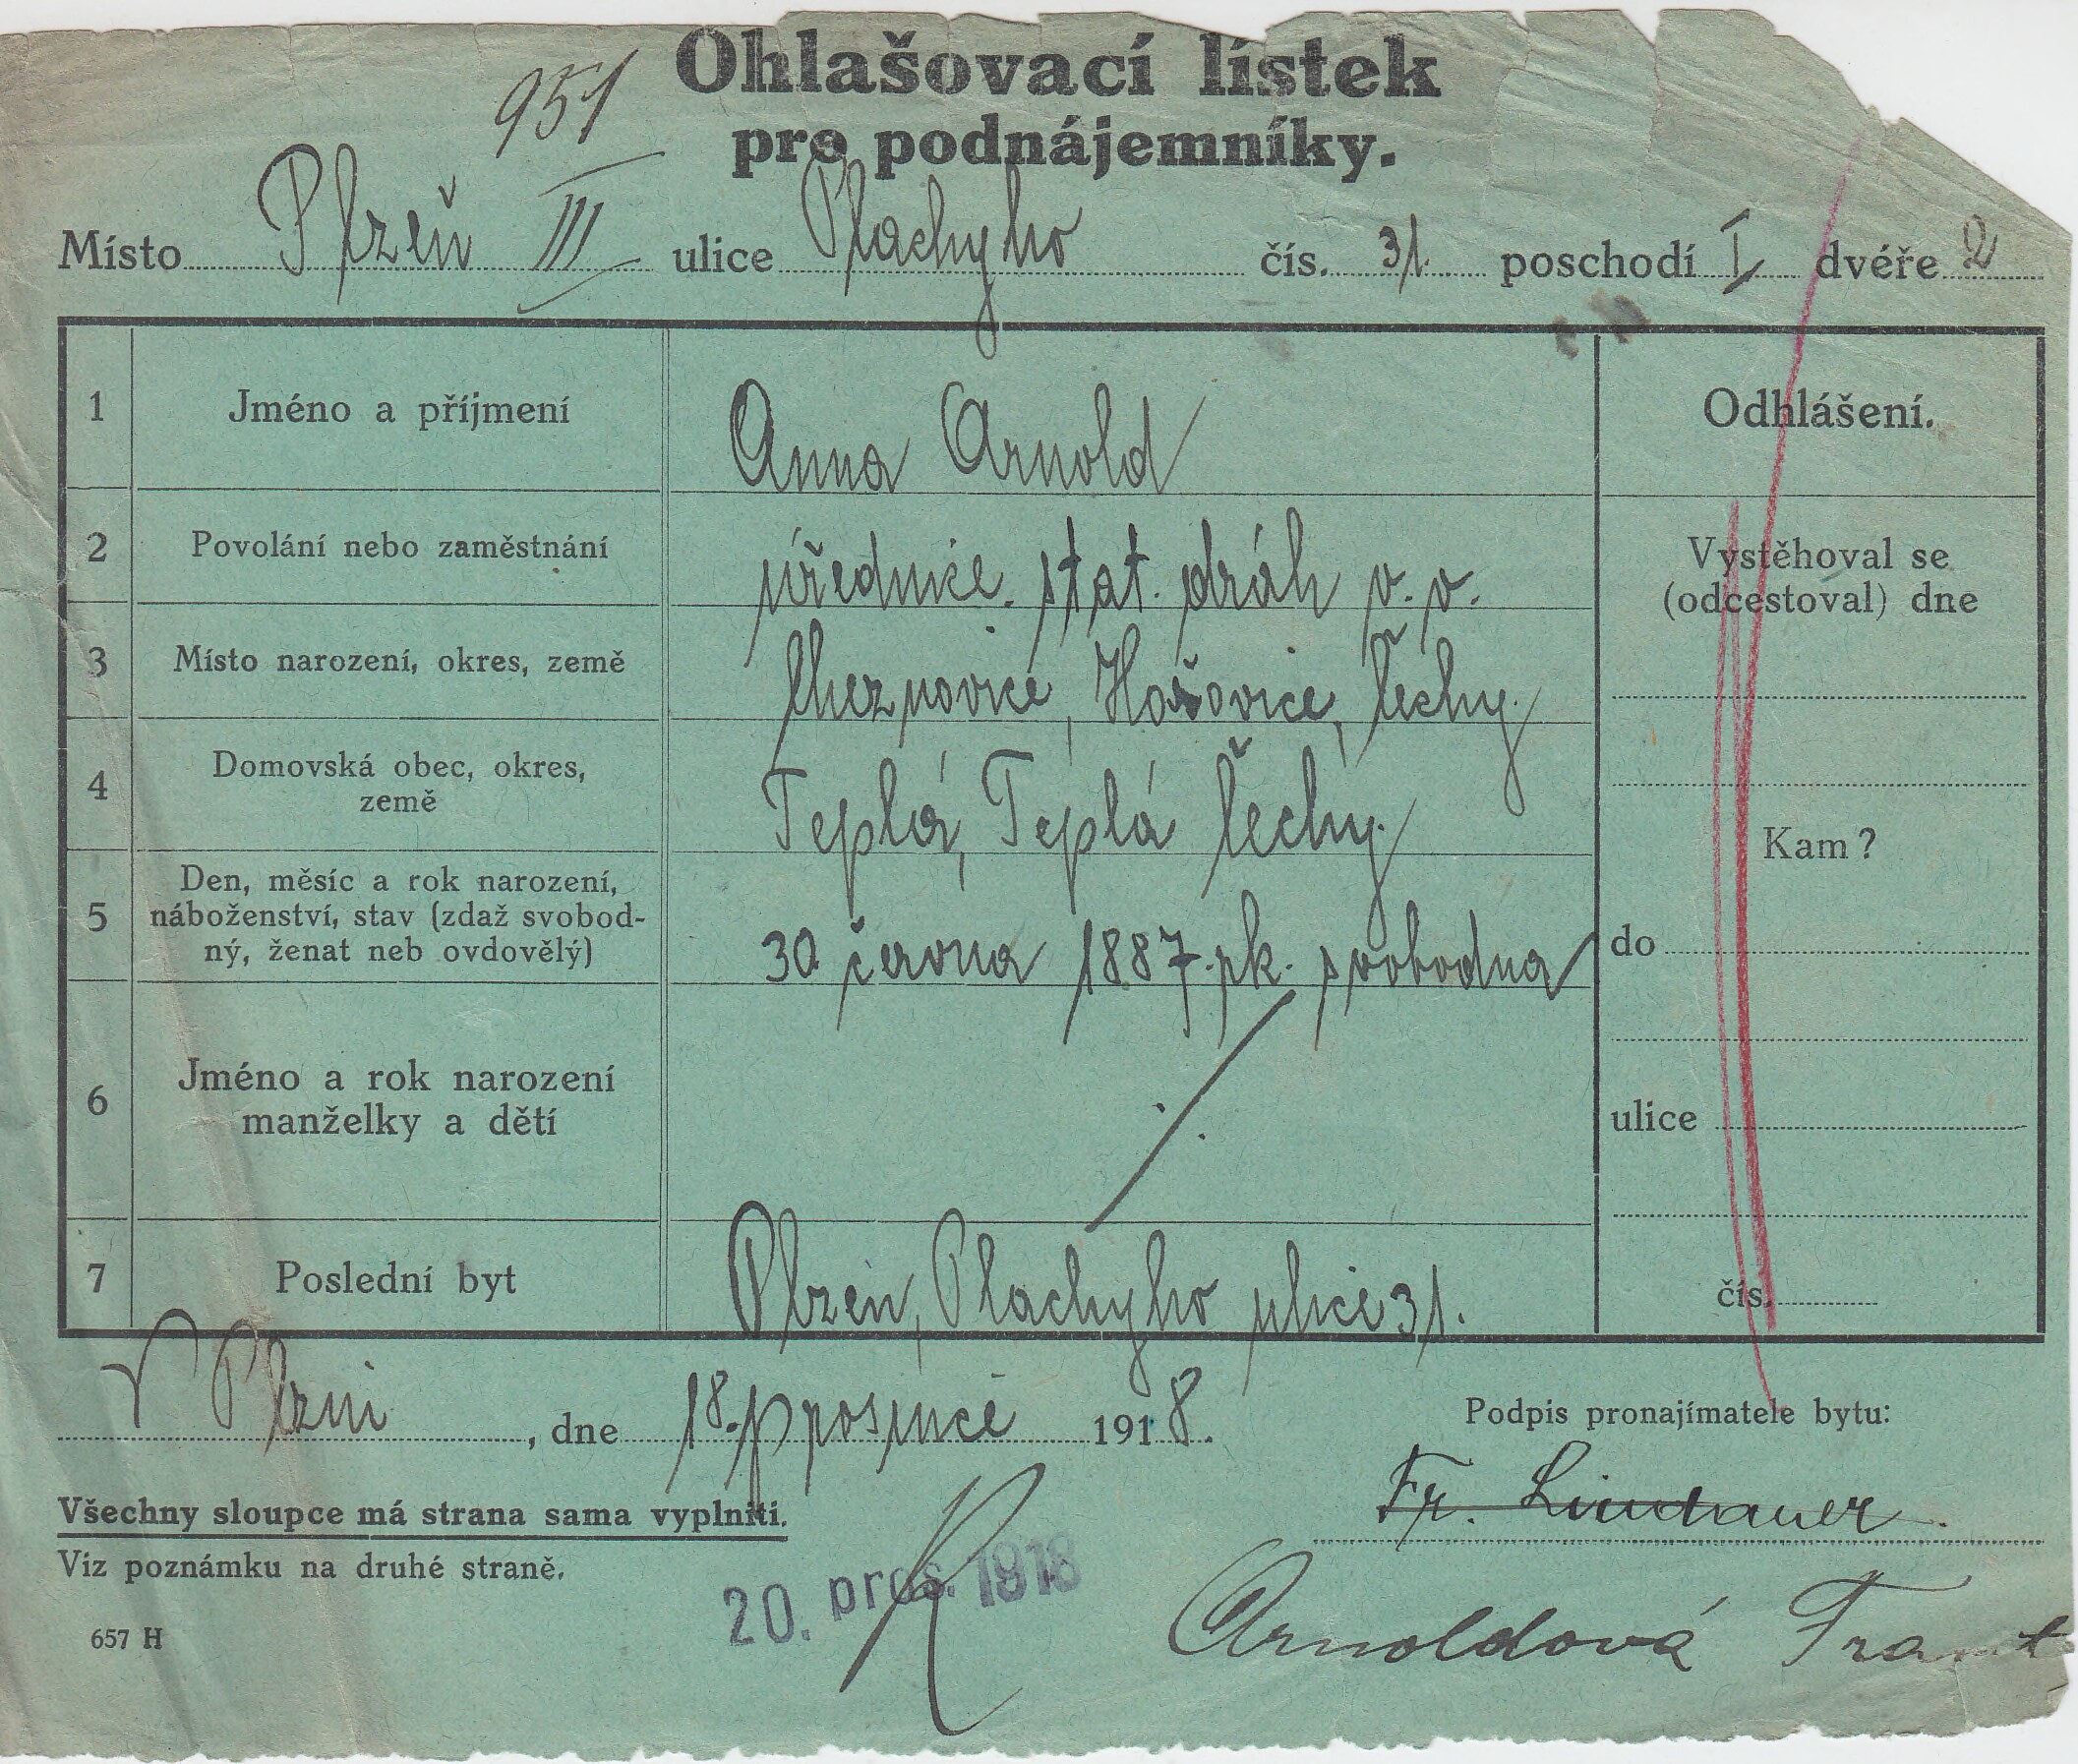 951
Ohlašovací lístek
pro podnájemníky.
Místo Plzeň III ulice Plachyho čís. 31. poschodí I. dvéře 2
1 Jméno a příjmení Anna Arnold
Odhlášení.
2 Povolání nebo zaměstnání úřednice. stat. drah v. v.
Vystěhoval se
(odcestoval) dne
3 Místo narození, okres, země Cheznovice, Hořovice, Čechy.
4 Domovská obec, okres,
země
Teplá, Teplá Čechy.
Kam?
5 Den, měsíc a rok narození,
náboženství, stav (zdaž svobod-
ný, ženat neb ovdovělý)
30. června 1887. svobodna
do
6 Jméno a rok narození
manželky a dětí
ulice
7 Poslední byt Plzeň, Plachyho ulice 31.
čís.
V Plzni, dne 18. prosince 1918.
Podpis pronajímatele bytu:
Všechny sloupce má strana sama vyplniti.
Fr. Lindauer.
Viz poznámku na druhé straně.
20. pros. 1918
Arnoldová
657 H